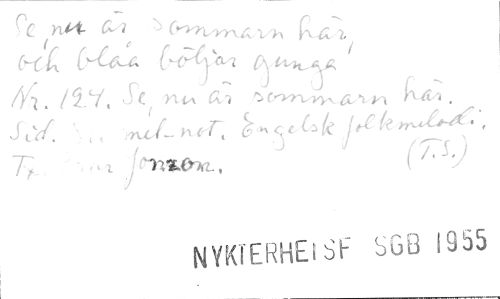 Se, nu är sommarn här,
och blåa böljor gunga
Nr. 124. Se, nu är sommarn här.
Sid. mel-not. Engelsk folkmelodi.
(T.S.)
Jonzon.
NYKTERHETSF SGB 1955